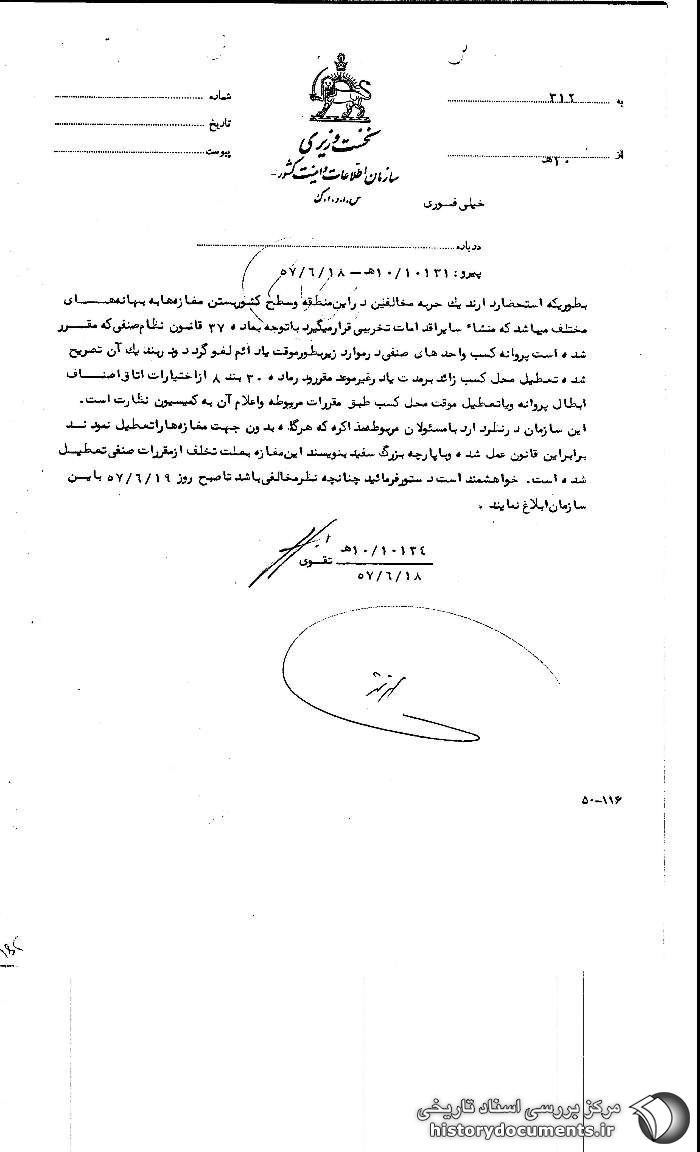 به ۳۱۲
شماره
تاریخ
از ۱۰هـ
پیوست
نخست وزیری
سازمان اطلاعات و امنیت کشور
س.ا.و.ا.ک
خیلی فوری
درباره
پیرو: ۱۰/۱۰۱۳۱هـ - ۵۷/۶/۱۸
بطوریکه استحضار دارند یک حربه مخالفین در این منطقه و سطح کشور بستن مغازه‌ها به بهانه‌های
مختلف میباشد که منشاء سایر اقدامات تخریبی قرار میگیرد با توجه بماده ۳۷ قانون نظام صنفی که مقرر
شده است پروانه کسب واحدهای صنفی در موارد زیر بطور موقت یا دائم لغو گردد و در بند یک آن تصریح
شده تعطیل محل کسب زائد بر مدت یا در غیر موعد مقرر و در ماده ۳۰ بند ۸ از اختیارات اتاق اصناف
ابطال پروانه و یا تعطیل موقت محل کسب طبق مقررات مربوطه و اعلام آن به کمیسیون نظارت است.
این سازمان در نظر دارد با مسئولان مربوطه مذاکره که هرگاه بدون جهت مغازه‌ها را تعطیل نمودند
برابر این قانون عمل شده و با پارچه بزرگ سفید بنویسند این مغازه بعلت تخلف از مقررات صنفی تعطیل
شده است. خواهشمند است دستور فرمائید چنانچه نظر مخالفی باشد تا صبح روز ۵۷/۶/۱۹ باین
سازمان ابلاغ نمایند.
۱۰/۱۰۱۳٤هـ
تقوی
۵۷/۶/۱۸
۵۰-۱۱۶
مرکز بررسی اسناد تاریخی
historydocuments.ir